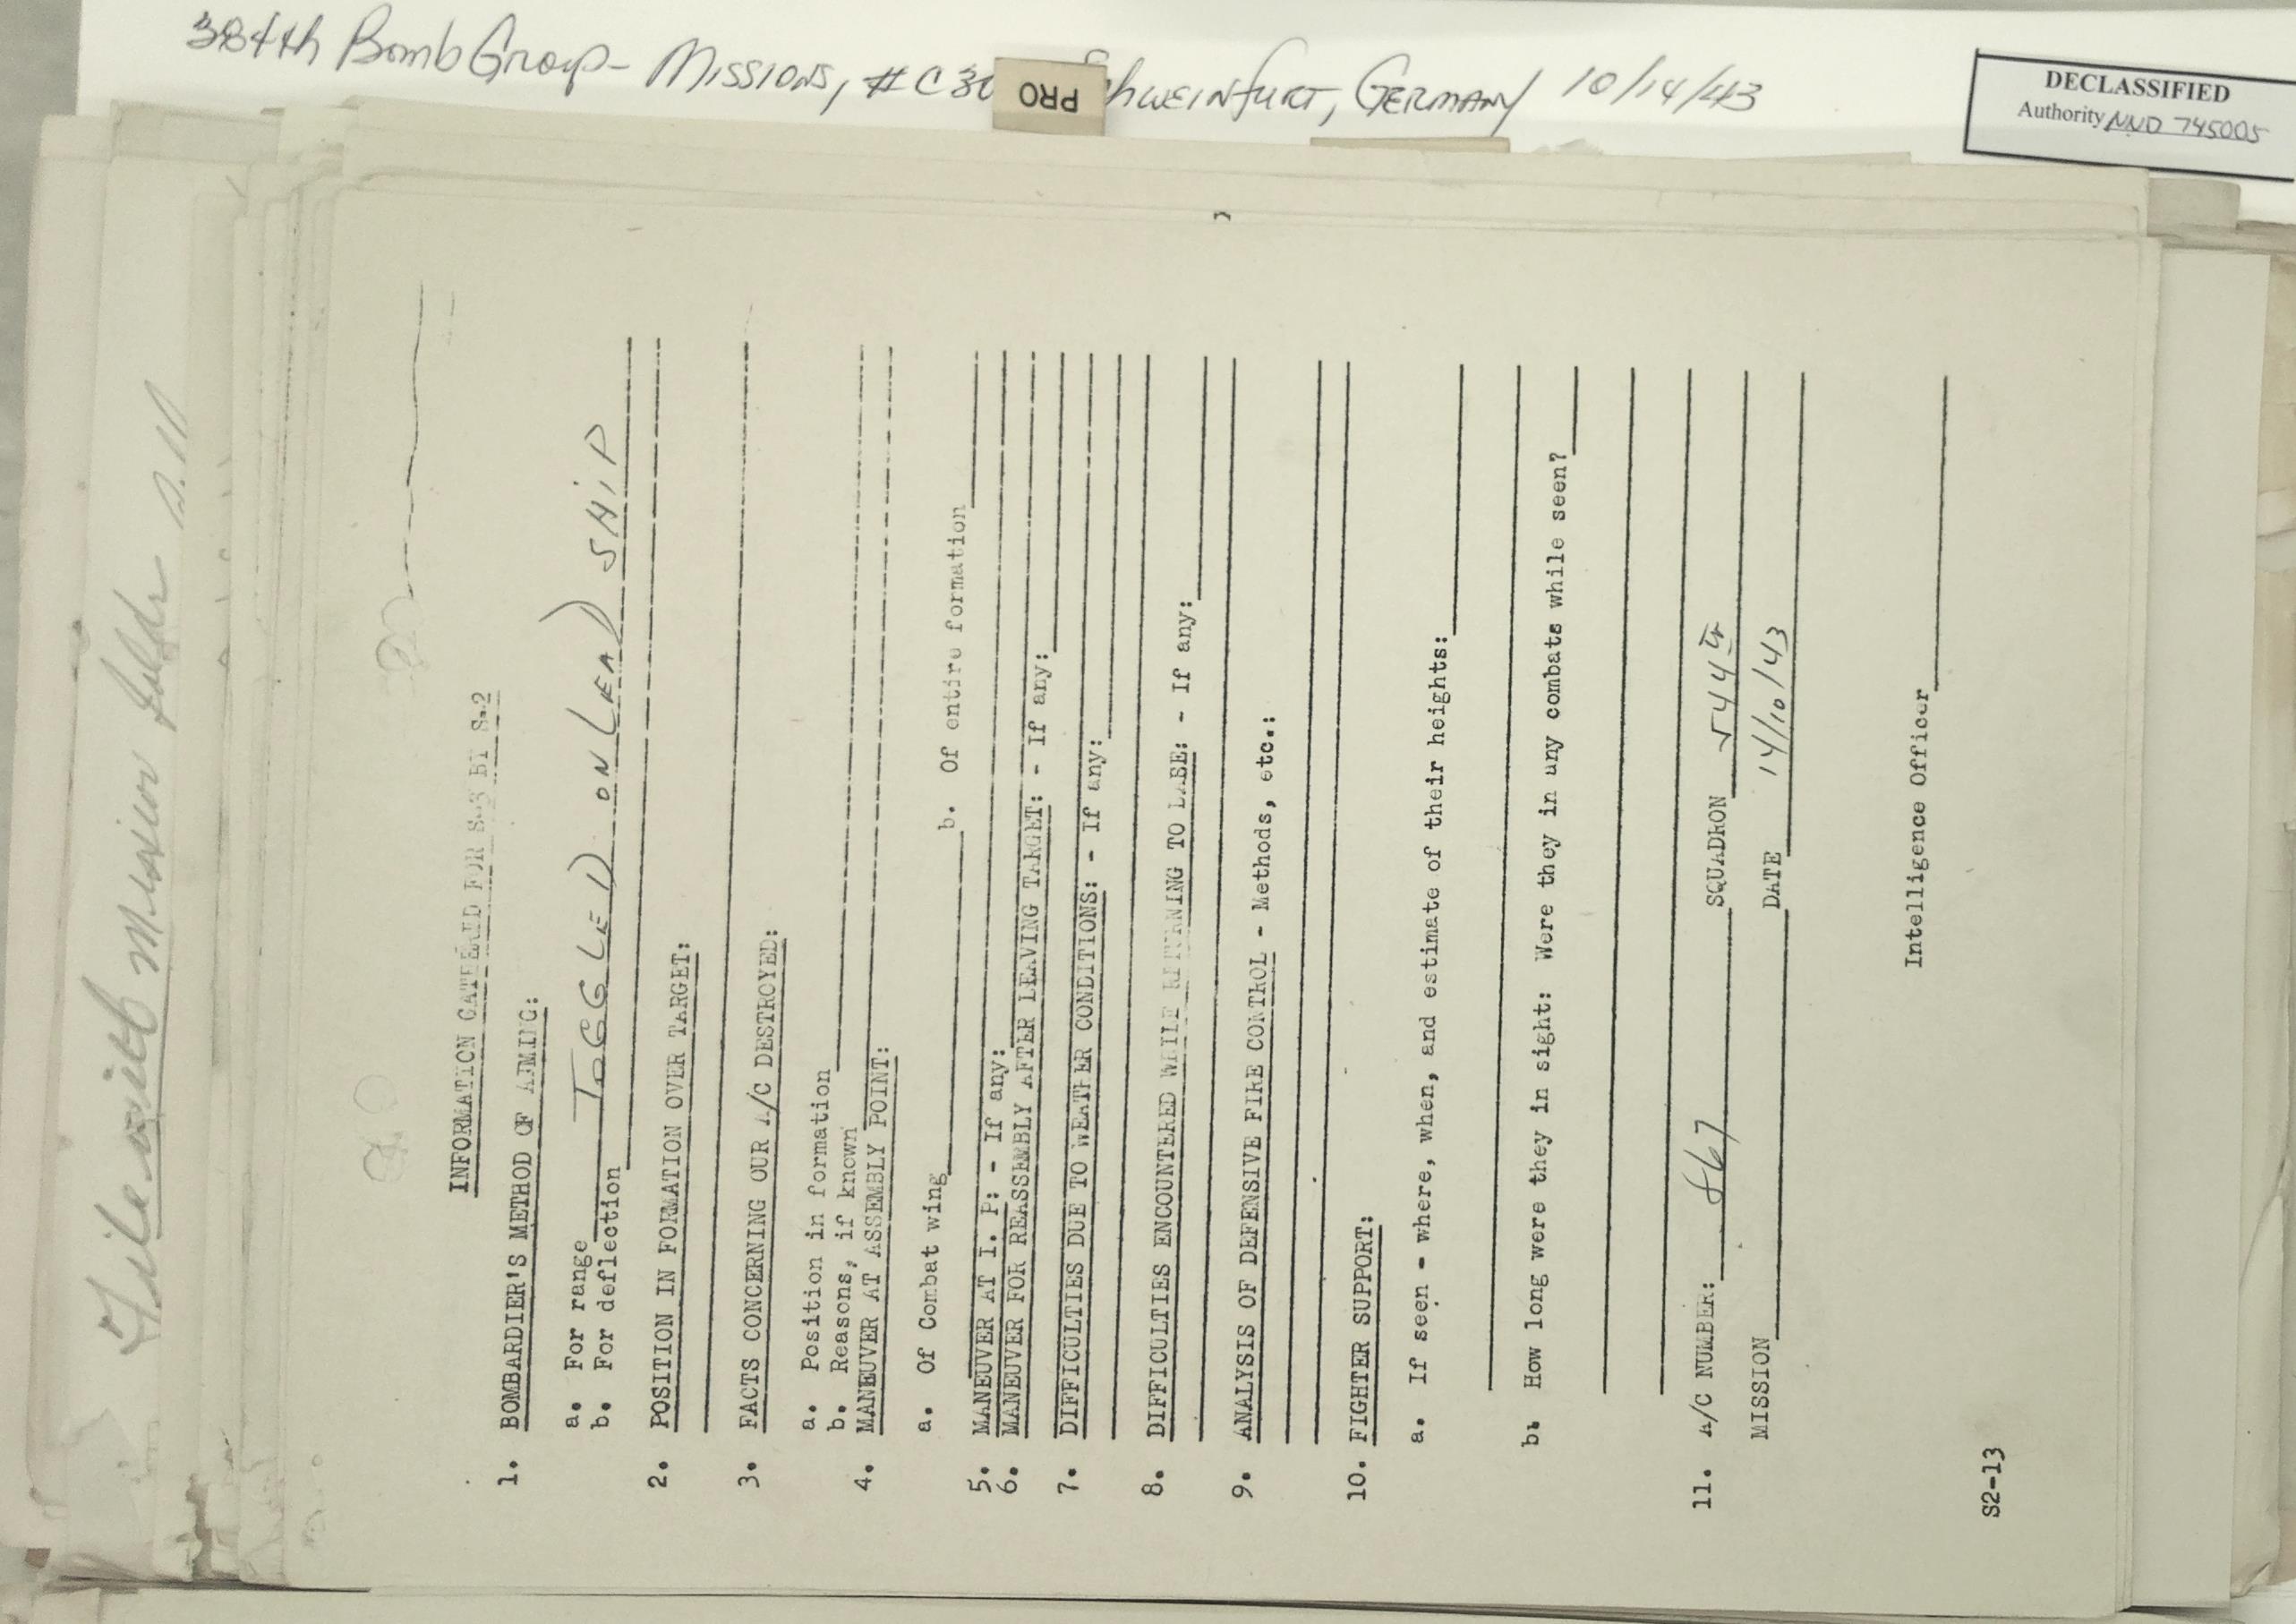 384th Bomb Group - Missions, #C30 PRO chweinfurt, Germany 10/14/43
DECLASSIFIED
Authority NND 745005
File with Mission
INFORMATION GATHERED FOR S-3 BY S-2
1. BOMBARDIER'S METHOD OF AIMING:
a. For range TOGGLED ON LEAD SHIP
b. For deflection
2. POSITION IN FORMATION OVER TARGET:
3. FACTS CONCERNING OUR A/C DESTROYED:
a. Position in formation
b. Reasons, if known
4. MANEUVER AT ASSEMBLY POINT:
a. Of Combat wing b. Of entire formation
5. MANEUVER AT I. P: - If any:
6. MANEUVER FOR REASSEMBLY AFTER LEAVING TARGET: - If any:
7. DIFFICULTIES DUE TO WEATHER CONDITIONS: - If any:
8. DIFFICULTIES ENCOUNTERED WHILE RETURNING TO LABE: - If any:
9. ANALYSIS OF DEFENSIVE FIRE CONTROL - Methods, etc.:
10. FIGHTER SUPPORT:
a. If seen - where, when, and estimate of their heights:
b. How long were they in sight: Were they in any combats while seen?
11. A/C NUMBER: 867 SQUADRON 544th
MISSION DATE 14/10/43
Intelligence Officer
S2-13